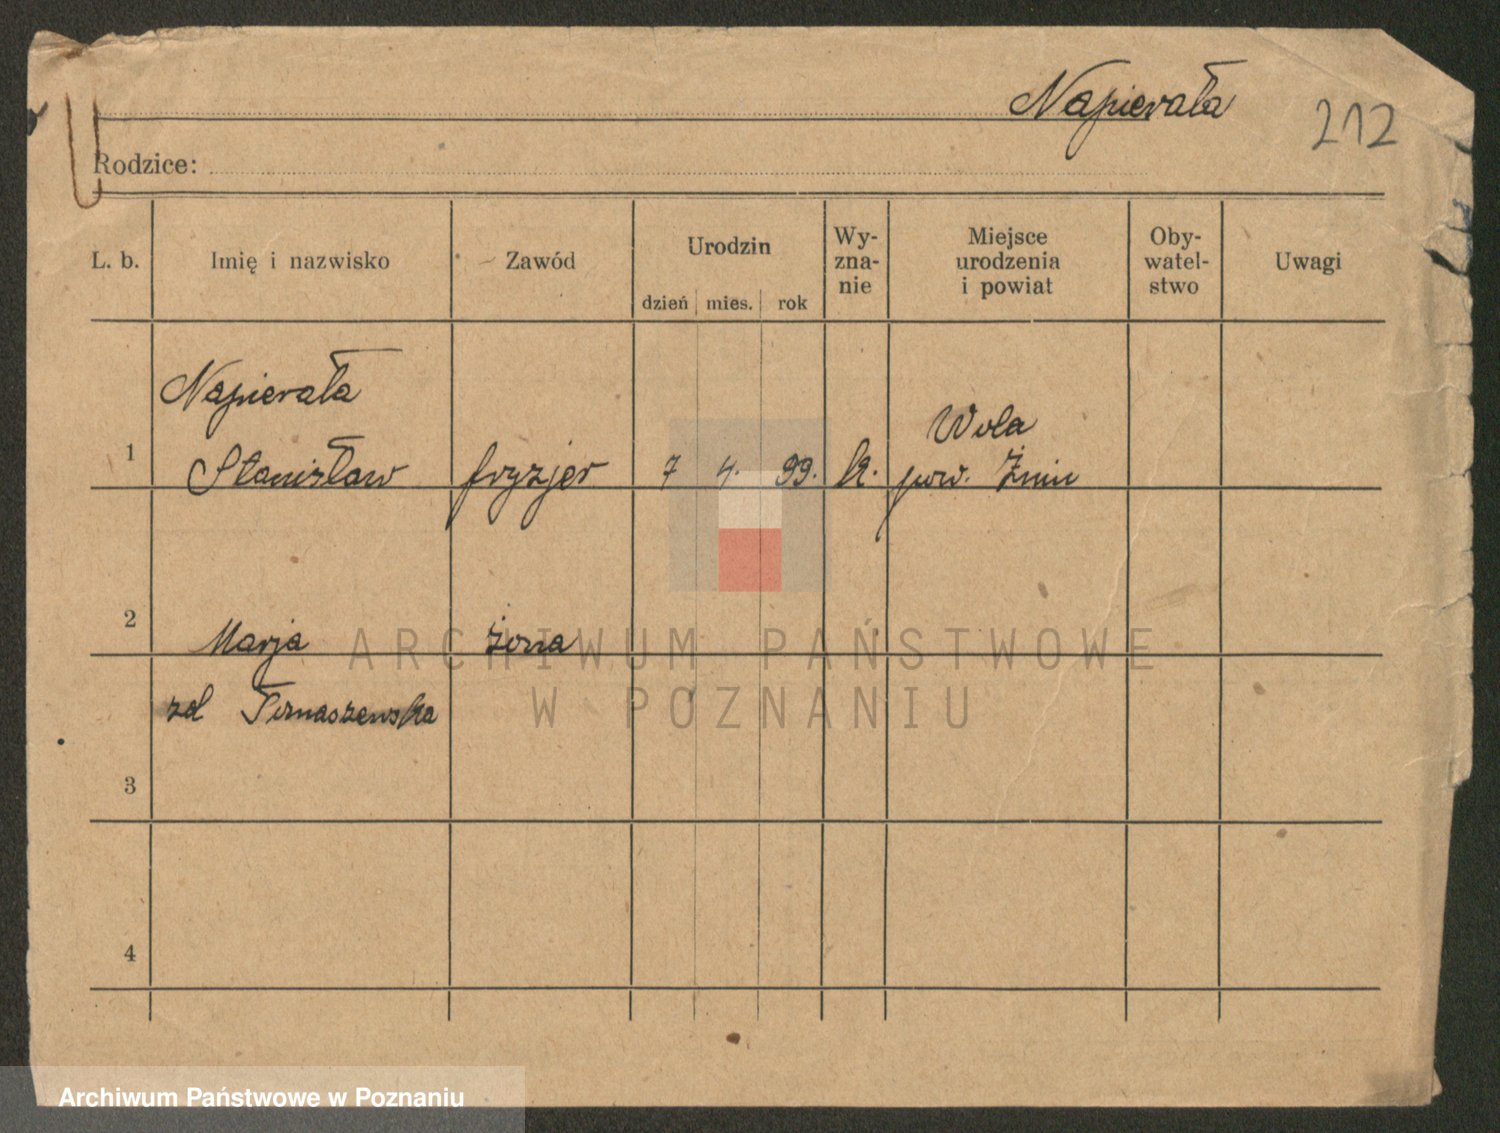 Napierała
212
Rodzice:
L. b. Imię i nazwisko Zawód Urodzin dzień mies. rok Wy-zna-nie Miejsce urodzenia i powiat Oby-watel-stwo Uwagi
Napierała
1 Stanisław fryzjer 7 4. 99. k. Wola
pow. Żnin
2 Marja żona
zd
3
4
ARCHIWUM PAŃSTWOWE
W POZNANIU
Archiwum Państwowe w Poznaniu